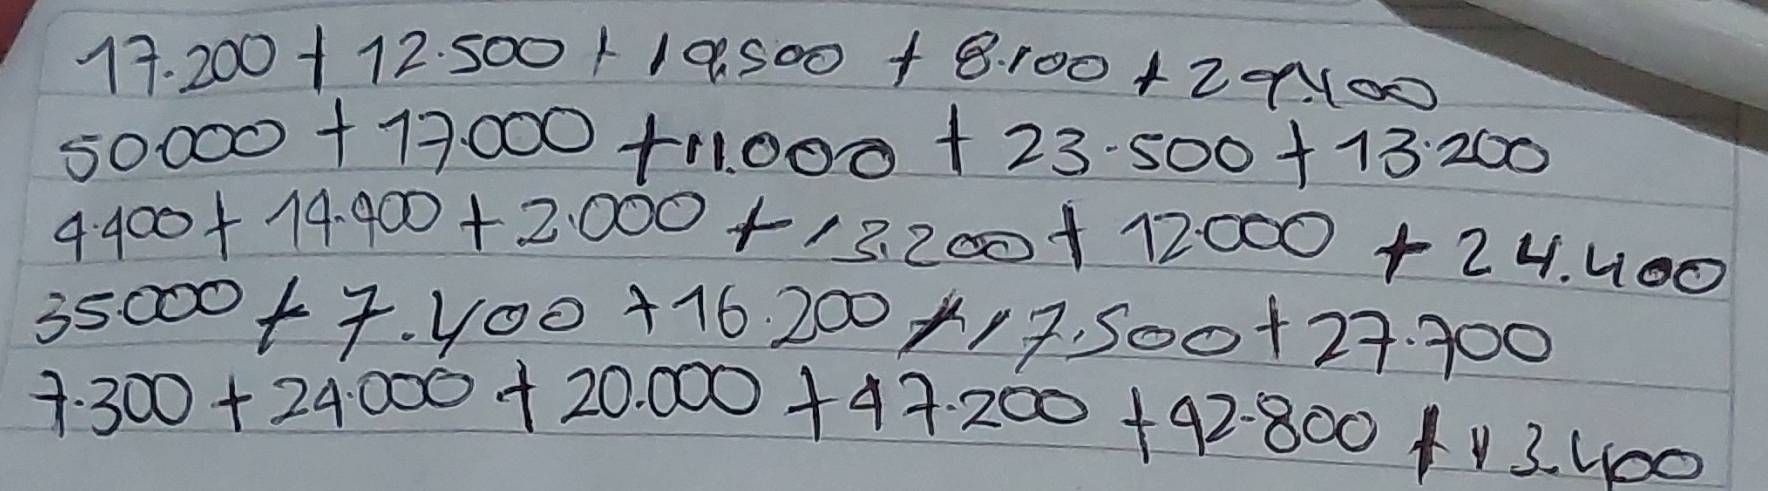 17.200 + 12.500 + 19.500 + 8.100 + 29.400
50.000 + 17.000 + 11.000 + 23.500 + 13.200
4.400 + 14.400 + 2.000 + 13.200 + 12.000 + 24.400
35.000 + 7.400 + 16.200 + 17.500 + 27.700
7.300 + 24.000 + 20.000 + 47.200 + 42.800 + 13.400